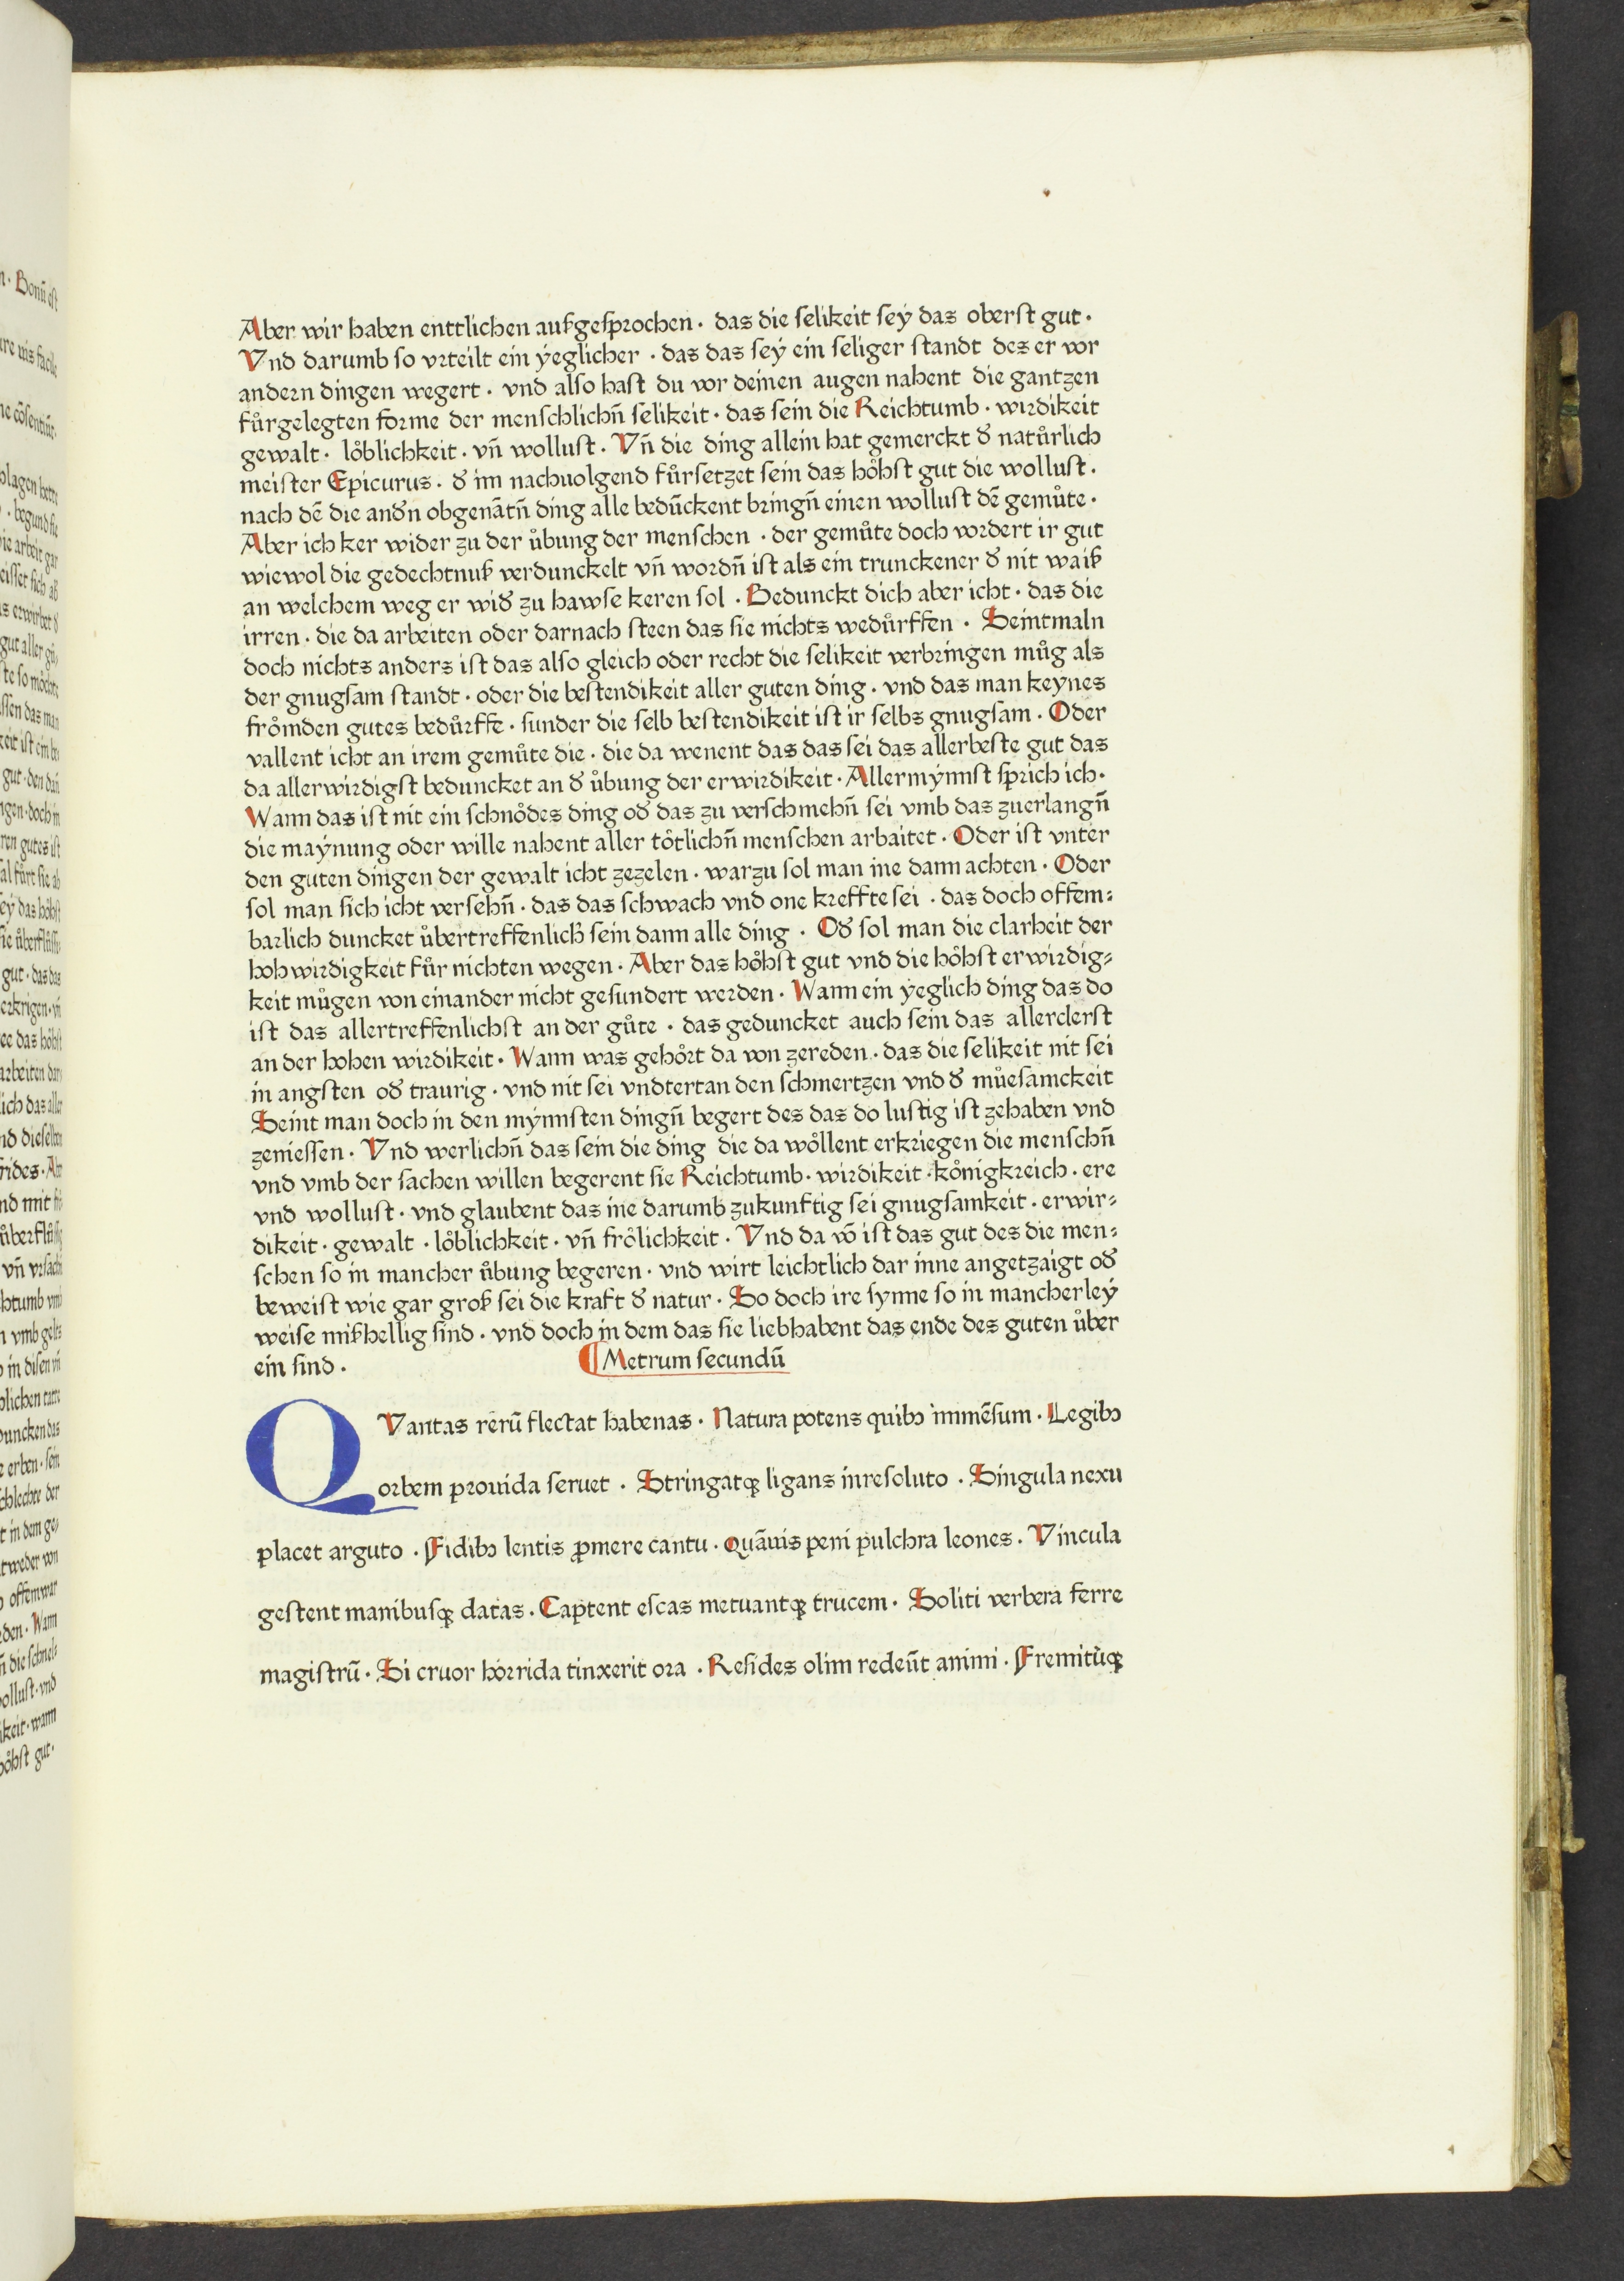 Aber wir haben enttlichen außgesprochen · das die selikeit seÿ das oberst gut ·
Vnd darumb so vrteilt ein ÿeglicher · das das seÿ ein seliger standt des er vor
andern dingen wegert · vnd also hast du vor deinen augen nahent die gantzen
fůrgelegten forme der menschlichn̄ selikeit · das sein die Reichtumb · wirdikeit
gewalt · lőblichkeit · vn̄ wollust · Vn̄ die ding allein hat gemerckt đ natůrlich
meister Epicurus · đ im nachuolgend fůrsetzet sein das hőhst gut die wollust ·
nach dē die anđn obgenātn̄ ding alle bedūckent bringn̄ einen wollust dē gemůte ·
Aber ich ker wider zu der ůbung der menschen · der gemůte doch vordert ir gut
wiewol die gedechtnuß verdunckelt vn̄ wordn̄ ist als ein trunckener đ nit waiß
an welchem weg er wiđ zu hawse keren sol · Bedunckt dich aber icht · das die
irren · die da arbeiten oder darnach steen das sie nichts wedůrffen · Seintmaln
doch nichts anders ist das also gleich oder recht die selikeit verbringen můg als
der gnugsam standt · oder die bestendikeit aller guten ding · vnd das man keynes
frőmden gutes bedůrffe · sunder die selb bestendikeit ist ir selbs gnugsam · Oder
vallent icht an irem gemůte die · die da wenent das das sei das allerbeste gut das
da allerwirdigst beduncket an đ ůbung der erwirdikeit · Allermÿnnst sprich ich ·
Wann das ist nit ein schnődes ding ođ das zu verschmehn̄ sei vmb das zuerlangn̄
die maÿnung oder wille nahent aller tőtlichn̄ menschen arbaitet · Oder ist vnter
den guten dingen der gewalt icht zezelen · warzu sol man ine dann achten · Oder
sol man sich icht versehn̄ · das das schwach vnd one kreffte sei · das doch offem⸗
barlich duncket ůbertreffenlich sein dann alle ding · Ođ sol man die clarheit der
hohwirdigkeit fůr nichten wegen · Aber das hőhst gut vnd die hőhst erwirdig⸗
keit můgen von einander nicht gesundert werden · Wann ein ÿeglich ding das do
ist das allertreffenlichst an der gůte · das geduncket auch sein das allerclerst
an der hohen wirdikeit · Wann was gehőrt da von zereden · das die selikeit nit sei
in angsten ođ traurig · vnd nit sei vndtertan den schmertzen vnd đ můesamckeit
Seint man doch in den mÿnnsten dingn̄ begert des das do lustig ist zehaben vnd
zeniessen · Vnd werlichn̄ das sein die ding die da wőllent erkriegen die menschn̄
vnd vmb der sachen willen begerent sie Reichtumb · wirdikeit · kőnigkreich · ere
vnd wollust · vnd glaubent das ine darumb zukunftig sei gnugsamkeit · erwir⸗
dikeit · gewalt · lőblichkeit · vn̄ frőlichkeit · Vnd da vō ist das gut des die men⸗
schen so in mancher ůbung begeren · vnd wirt leichtlich dar inne angetzaigt ođ
beweist wie gar groß sei die kraft đ natur · So doch ire synne so in mancherleÿ
weise mißhellig sind · vnd doch in dem das sie liebhabent das ende des guten ůber
ein sind ·
¶ Metrum secundū
QVantas rerū flectat habenas · Natura potens quibꝰ immēsum · Legibꝰ
orbem prouida seruet · Stringatqꝫ ligans inresoluto · Singula nexu
placet arguto · Fidibꝰ lentis ꝓmere cantu · Quāuis peni pulchra leones · Vincula
gestent manibusqꝫ datas · Captent escas metuantqꝫ trucem · Soliti verbera ferre
magistrū · Si cruor horrida tinxerit ora · Resides olim redeūt animi · Fremitūqꝫ